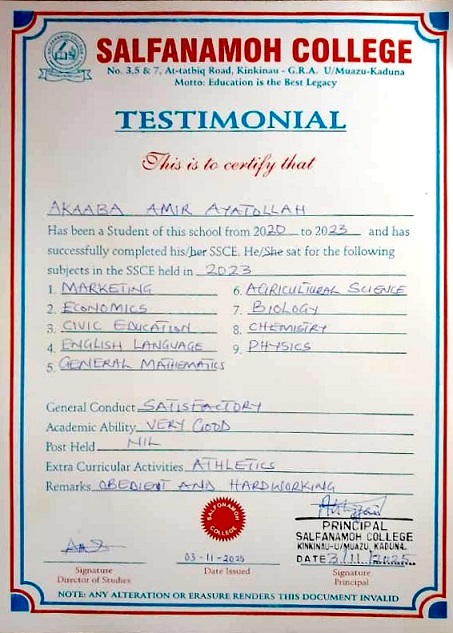 SALFANAMOH COLLEGE
No. 3,5 & 7, At-tathiq Road, Kinkinau - G.R.A. U/Muazu-Kaduna
Motto: Education is the Best Legacy
TESTIMONIAL
This is to certify that
AKAABA AMIR AYATOLLAH
Has been a Student of this school from 2020 to 2023 and has
successfully completed his/her SSCE. He/She sat for the following
subjects in the SSCE held in 2023
1. MARKETING
2. ECONOMICS
3. CIVIC EDUCATION
4. ENGLISH LANGUAGE
5. GENERAL MATHEMATICS
6. AGRICULTURAL SCIENCE
7. BIOLOGY
8. CHEMISTRY
9. PHYSICS
General Conduct SATISFACTORY
Academic Ability VERY GOOD
Post Held NIL
Extra Curricular Activities ATHLETICS
Remarks OBEDIENT AND HARDWORKING
SALFANAMOH
COLLEGE
PRINCIPAL
SALFANAMOH COLLEGE
KINKINAU-U/MUAZU, KADUNA.
DATE 3/11/2025
Signature
Director of Studies
03-11-2025
Date Issued
Signature
Principal
NOTE: ANY ALTERATION OR ERASURE RENDERS THIS DOCUMENT INVALID